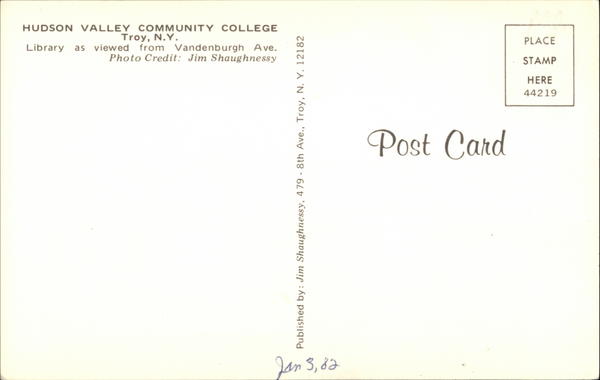 HUDSON VALLEY COMMUNITY COLLEGE
Troy, N.Y.
Library as viewed from Vandenburgh Ave.
Photo Credit: Jim Shaughnessy
Published by: Jim Shaughnessy, 479 - 8th Ave., Troy, N. Y. 12182
PLACE
STAMP
HERE
44219
Post Card
Jan 3, 82